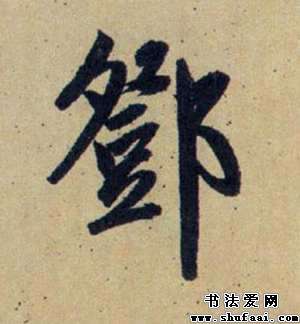 鄧
书法爱网
www.shufaai.com